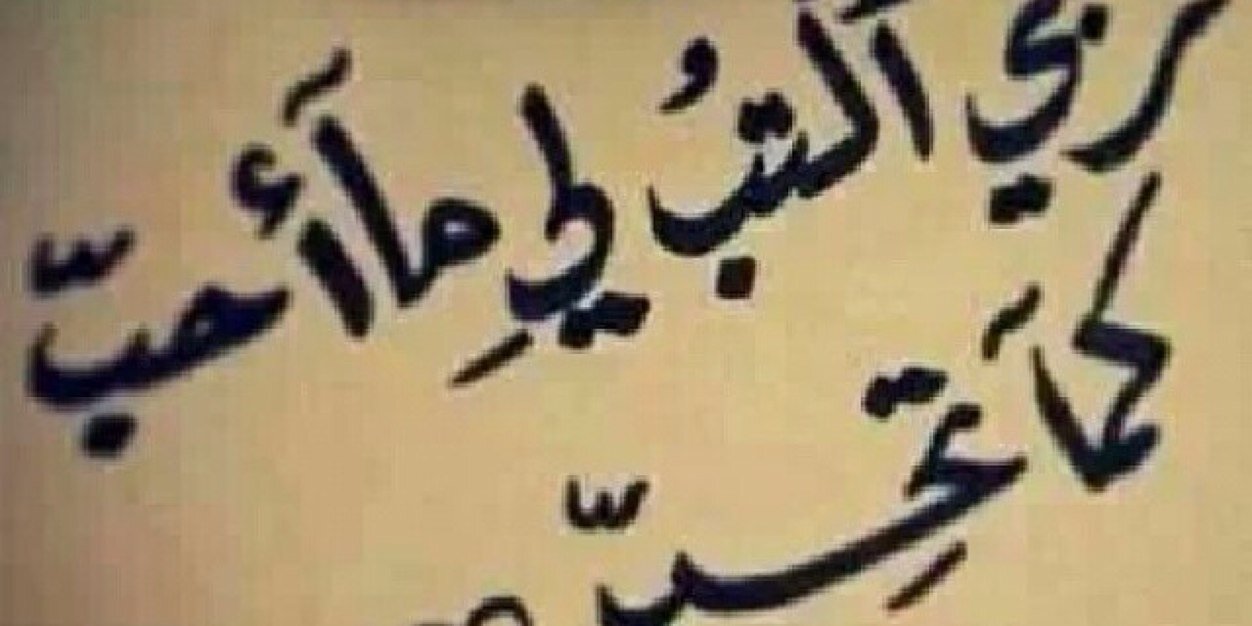 ربي أكتبُ لي ما أحبّ
كما تحبّ